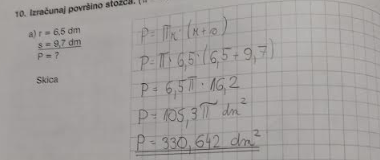 10. Izračunaj površino stožca.
a) r = 6,5 dm
s = 9,7 dm
P = ?
Skica
P = πr (r + s)
P = π · 6,5 · (6,5 + 9,7)
P = 6,5π · 16,2
P = 105,3π dm²
P = 330,642 dm²